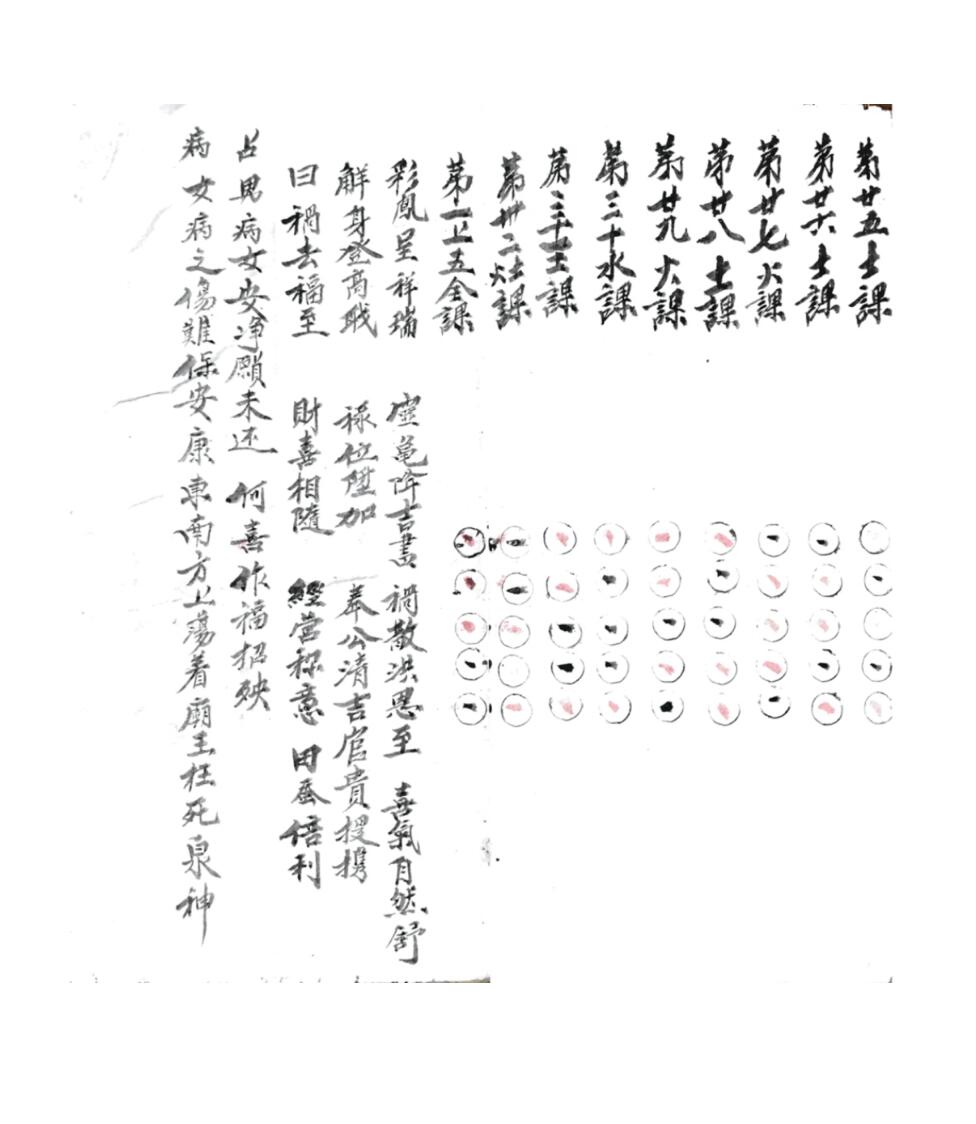 第廿五土課
第廿六土課
第廿七火課
第廿八土課
第廿九火課
第三十水課
第三十土課
第卅二土火課
第一上五金課
彩鳳呈祥瑞 灵龟降吉書 禍散洪恩至 喜氣自然舒
解身登高戢 禄位陞加 奉公清吉官貴授携
曰禍去福至 財喜相隨 經营称意 田蚕倍利
占男病女安净願未还 何喜作福招殃
病女病之傷難保安康東南方上蕩着廟王枉死泉神